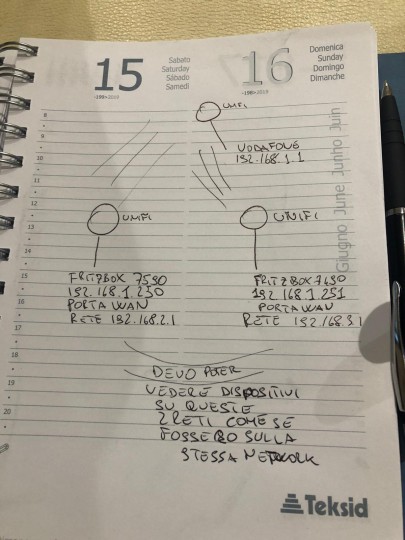 15
Sabato
Saturday
Sábado
Samedi
16
Domenica
Sunday
Domingo
Dimanche
-199>2019
UNIFI
VODAFONE
192.168.1.1
Giugno June Junho Juin
UNIFI
UNIFI
FRITZBOX 7590
192.168.1.250
PORTA WAN
RETE 192.168.2.1
192.168.1.251
PORTA WAN
RETE 192.168.3.1
DEVO POTER
VEDERE DISPOSITIVI
SU QUESTE
2 RETI COME SE
FOSSERO SULLA
STESSA NETWORK
8
9
10
11
12
13
15
16
17
18
19
20
Teksid